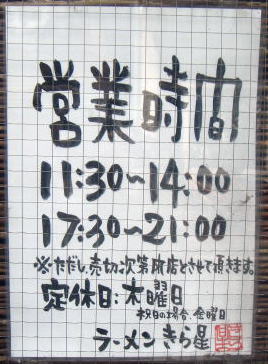 営業時間
11:30～14:00
17:30～21:00
※ただし、売切次第閉店とさせて頂きます。
定休日:木曜日
祝日の場合、金曜日
ラーメンきら星